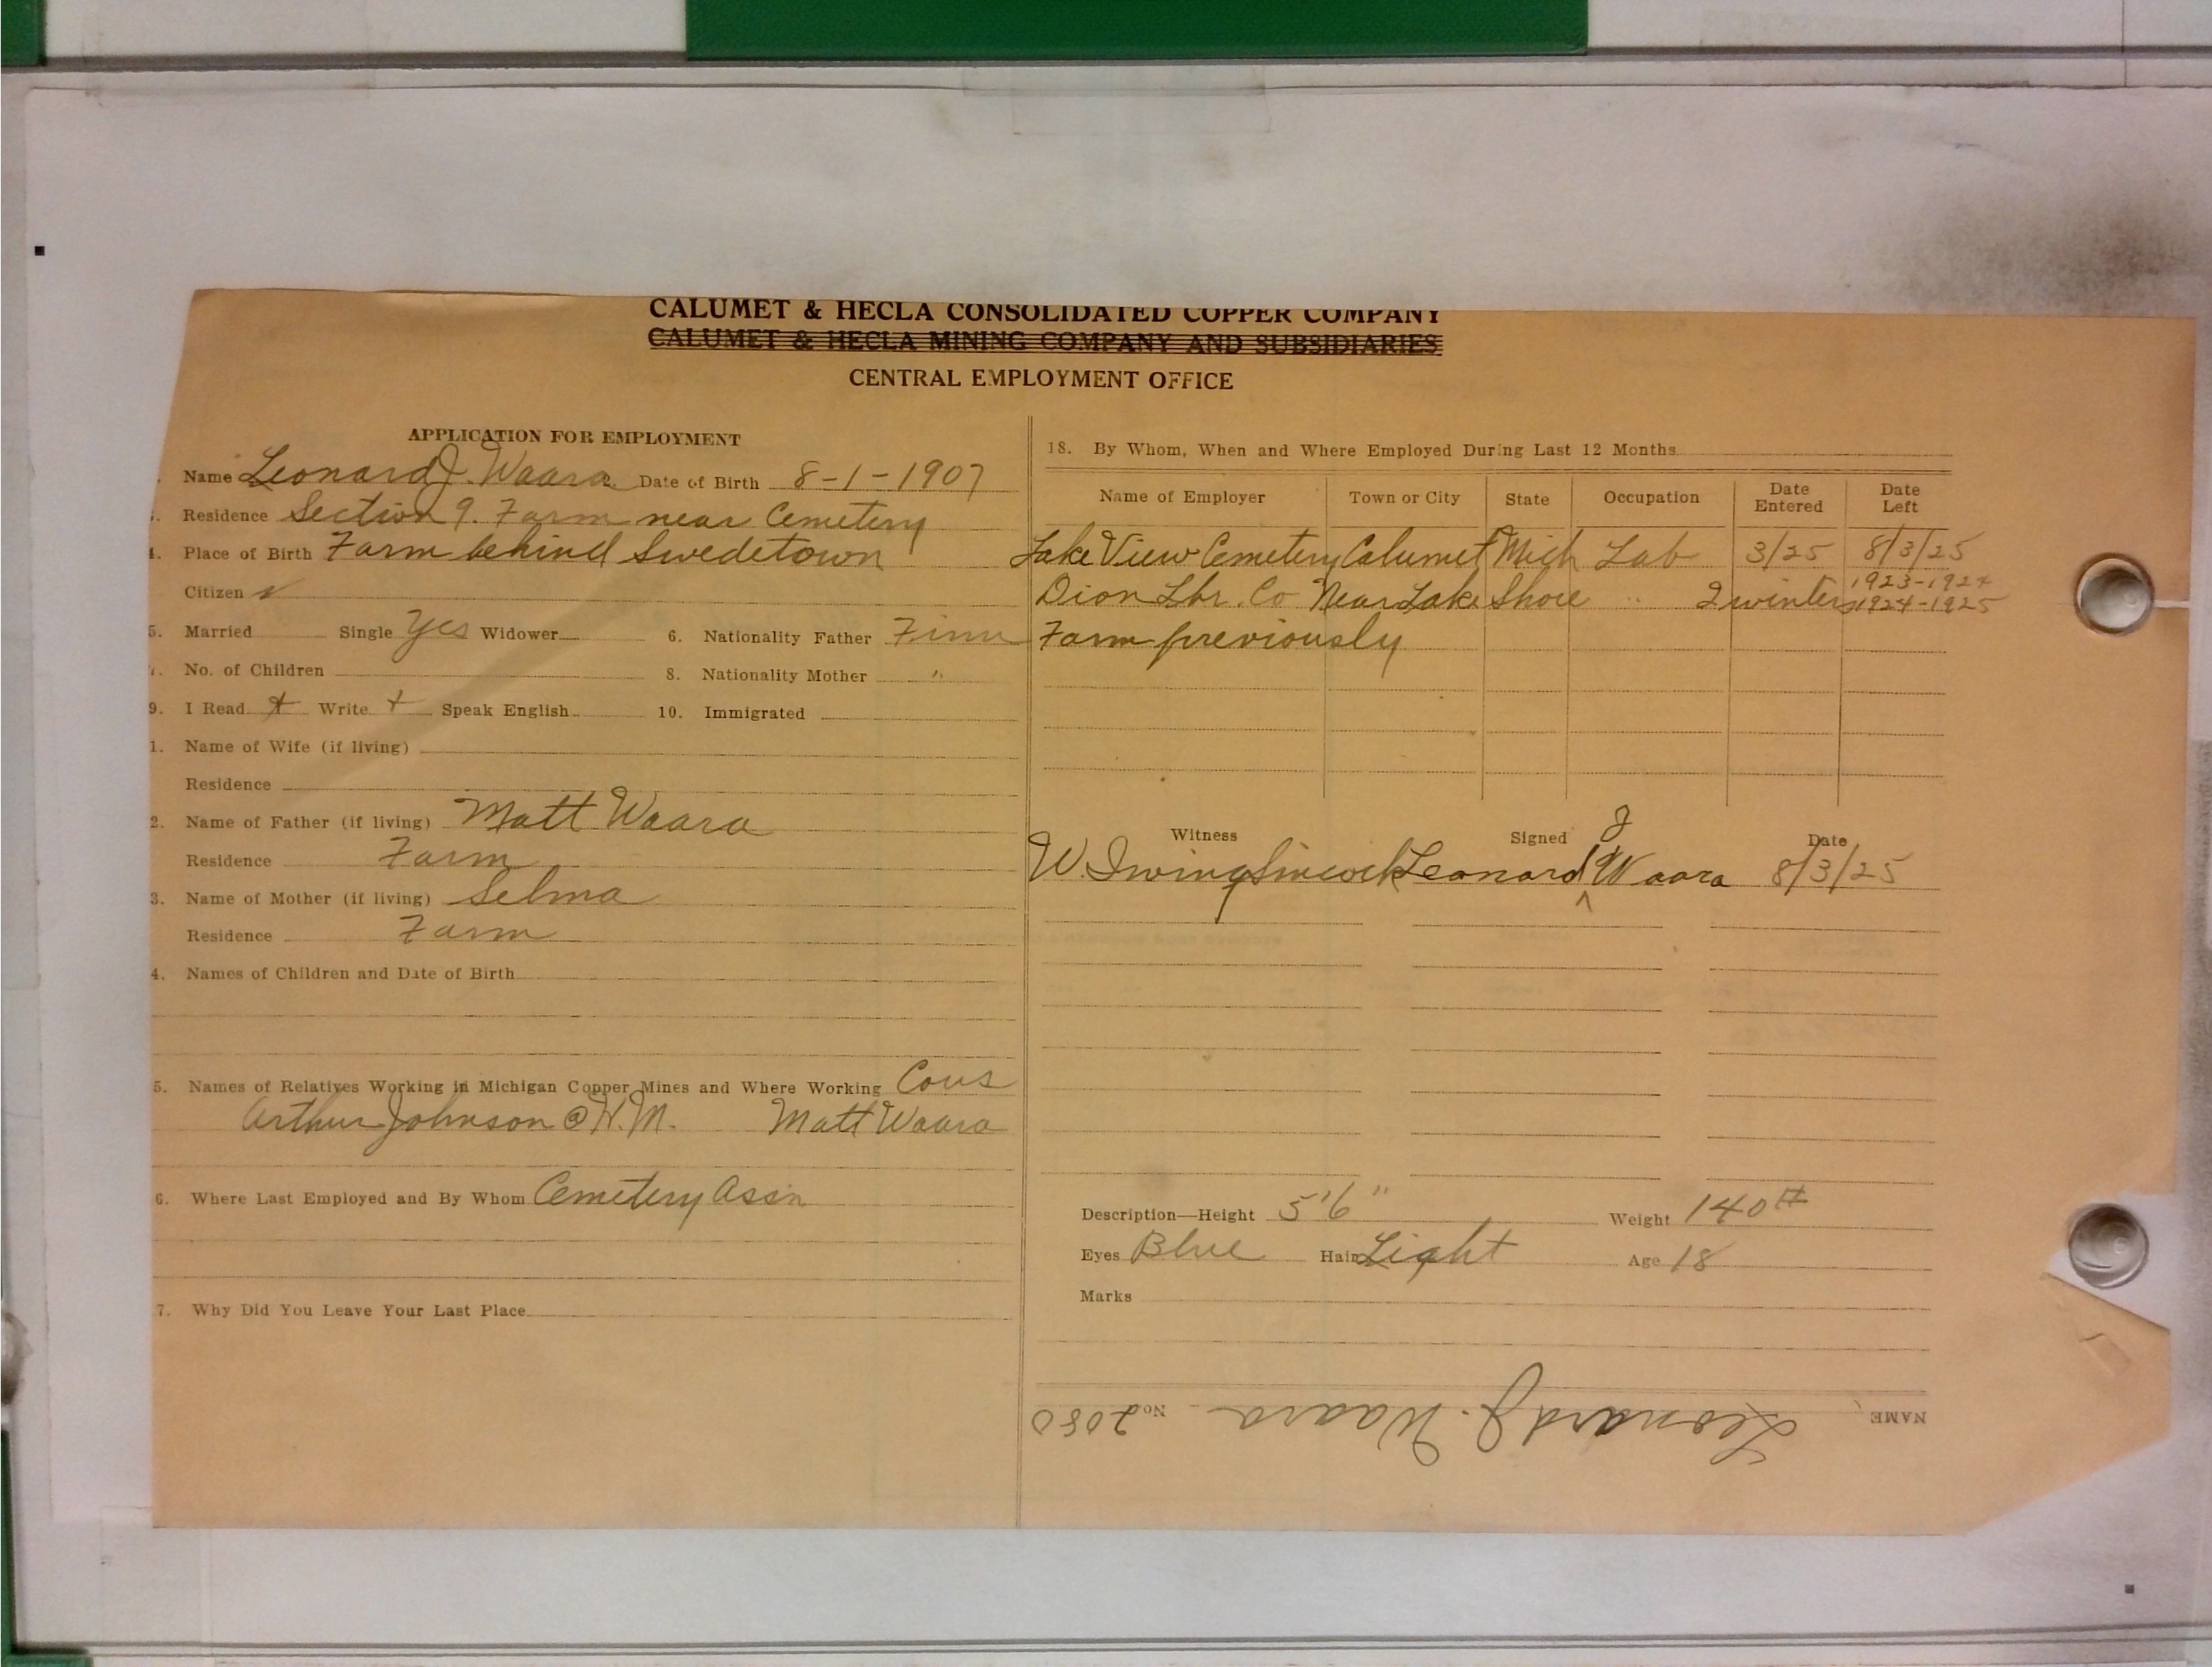 CALUMET & HECLA CONSOLIDATED COPPER COMPANY
CALUMET & HECLA MINING COMPANY AND SUBSIDIARIES
CENTRAL EMPLOYMENT OFFICE
APPLICATION FOR EMPLOYMENT
Name Leonard J. Waara Date of Birth 8-1-1907
Residence Section 9. Farm near Cemetery
4. Place of Birth Farm behind Swedetown
Citizen ✓
5. Married Single Yes Widower 6. Nationality Father Finn
No. of Children 8. Nationality Mother "
9. I Read + Write + Speak English 10. Immigrated
1. Name of Wife (if living)
Residence
2. Name of Father (if living) Matt Waara
Residence Farm
3. Name of Mother (if living) Selma
Residence Farm
4. Names of Children and Date of Birth
5. Names of Relatives Working in Michigan Copper Mines and Where Working Cous
Arthur Johnson @ N.M. Matt Waara
6. Where Last Employed and By Whom Cemetery Assn
7. Why Did You Leave Your Last Place
18. By Whom, When and Where Employed During Last 12 Months
Name of Employer Town or City State Occupation Date Entered Date Left
Lake View Cemetery Calumet Mich Lab 3/25 8/3/25
Dion Lbr. Co Near Lake Shore " 2 winters 1923-1924
1924-1925
Farm previously
Witness Signed Date
W. Irving Sincock Leonard J Waara 8/3/25
Description—Height 5'6" Weight 140#
Eyes Blue Hair Light Age 18
Marks
NAME Leonard J. Waara No. 2080